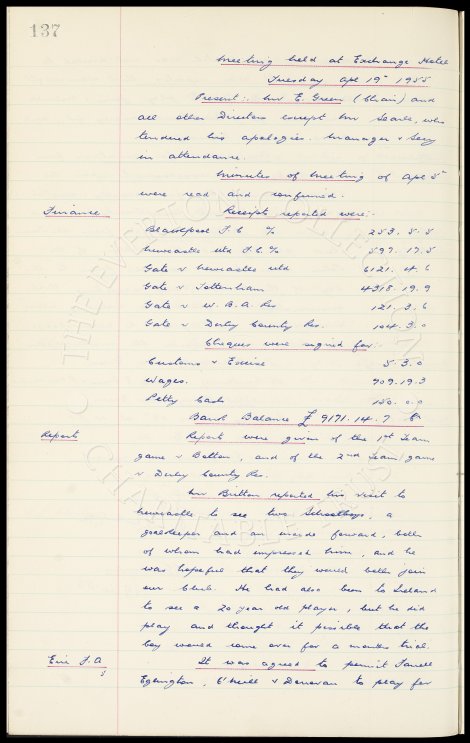 137
Meeting held at Exchange Hotel
Tuesday Apl 19th 1955
Present:- Mr E. Green (Chair) and
all other Directors except Mr Searle, who
tendered his apologies. Manager & Secy
in attendance.
Minutes of Meeting of Apl 5th
were read and confirmed.
Finance
Receipts reported were:-
Blackpool F.C. % 253. 5. 5
Newcastle Utd F.C. % 597. 17. 5
Gate v Newcastle Utd 6121. 4. 6
Gate v Tottenham 4318. 19. 9
Gate v W.B.A. Res 121. 3. 6
Gate v Derby County Res. 104. 3. 0
Cheques were signed for
Customs & Excise 5. 3. 0
Wages. 909. 19. 3
Petty Cash 150. 0. 0
Bank Balance £ 9171. 14. 7
Reports
Reports were given of the 1st Team
game v Bolton, and of the 2nd Team game
v Derby County Res.
Mr Britton reported his visit to
Newcastle to see two Schoolboys, a
goalkeeper and an inside forward, both
of whom had impressed him, and he
was hopeful that they would both join
our Club. He had also been to Ireland
to see a 20 year old player, but he did
play and thought it possible that the
boy would come over for a months trial.
Eire F.A.
It was agreed to permit Farrell
Eglington, O'Neill & Donovan to play for
THE EVERTON COLLECTION
CHARITABLE TRUST